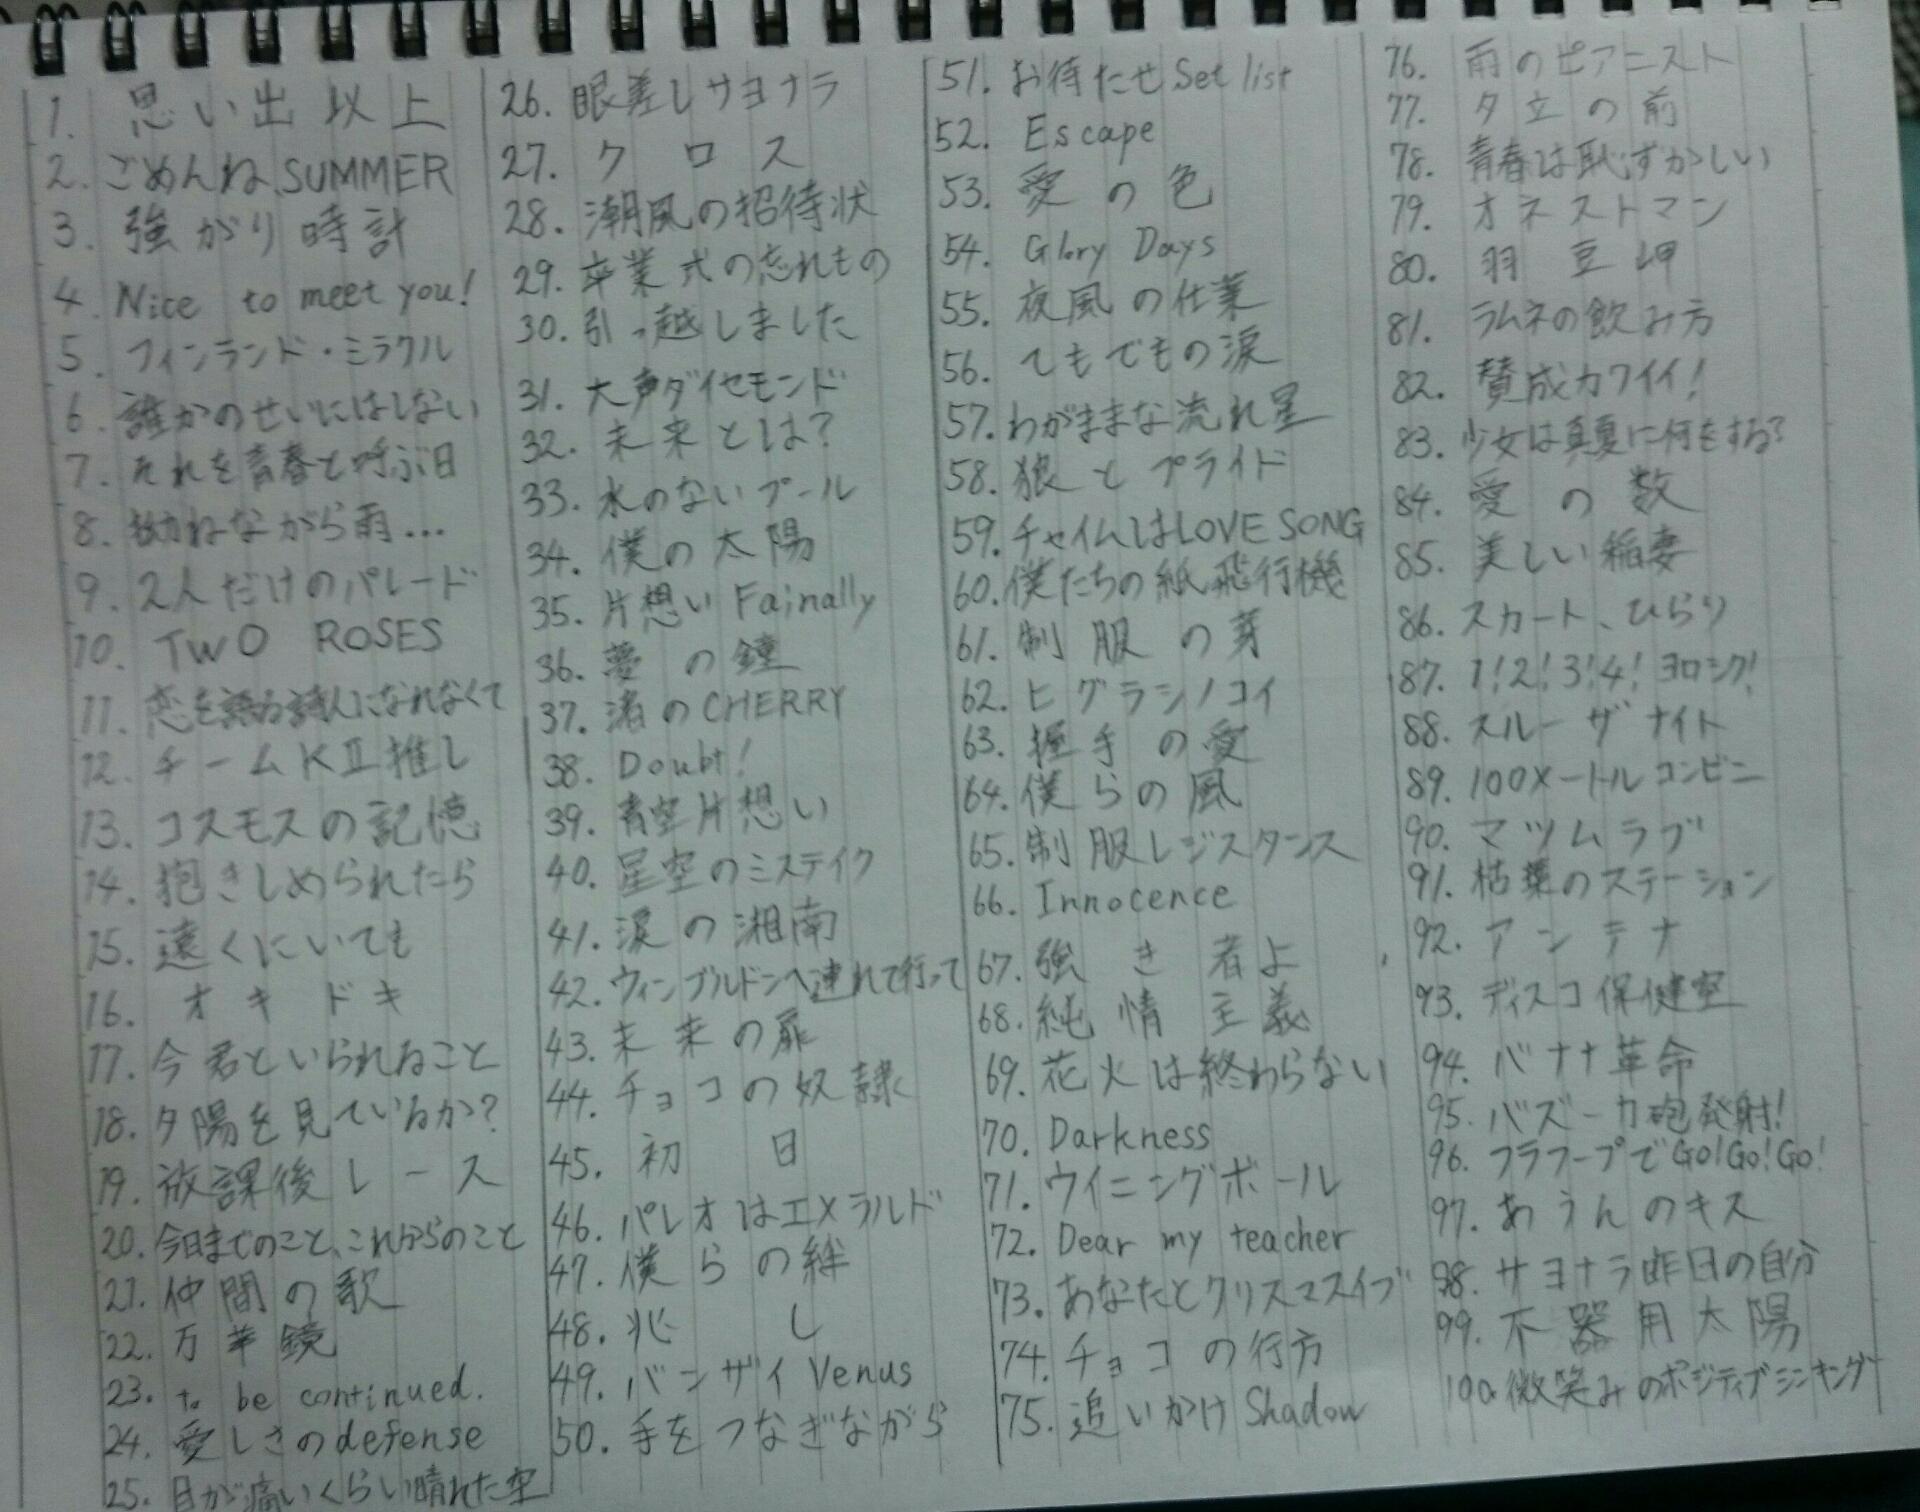 1. 思い出以上
2. ごめんね、SUMMER
3. 強がり時計
4. Nice to meet you!
5. フィンランド・ミラクル
6. 誰かのせいにはしない
7. それを青春と呼ぶ日
8. 拗ねながら雨...
9. 2人だけのパレード
10. TWO ROSES
11. 恋を語る詩人になれなくて
12. チームKⅡ推し
13. コスモスの記憶
14. 抱きしめられたら
15. 遠くにいても
16. オキドキ
17. 今君といられること
18. 夕陽を見ているか?
19. 放課後レース
20. 今日までのこと、これからのこと
21. 仲間の歌
22. 万華鏡
23. to be continued.
24. 愛しさのdefense
25. 目が痛いくらい晴れた空
26. 眼差しサヨナラ
27. クロス
28. 潮風の招待状
29. 卒業式の忘れもの
30. 引っ越しました
31. 大声ダイヤモンド
32. 未来とは?
33. 水のないプール
34. 僕の太陽
35. 片想いFainally
36. 夢の鐘
37. 渚のCHERRY
38. Doubt!
39. 青空片想い
40. 星空のミステイク
41. 涙の湘南
42. ウィンブルドンへ連れて行って
43. 未来の扉
44. チョコの奴隷
45. 初日
46. パレオはエメラルド
47. 僕らの絆
48. 兆し
49. バンザイVenus
50. 手をつなぎながら
51. お待たせSet list
52. Escape
53. 愛の色
54. Glory Days
55. 夜風の仕業
56. てもでもの涙
57. わがままな流れ星
58. 狼とプライド
59. チャイムはLOVE SONG
60. 僕たちの紙飛行機
61. 制服の芽
62. ヒグラシノコイ
63. 握手の愛
64. 僕らの風
65. 制服レジスタンス
66. Innocence
67. 強き者よ
68. 純情主義
69. 花火は終わらない
70. Darkness
71. ウイニングボール
72. Dear my teacher
73. あなたとクリスマスイブ
74. チョコの行方
75. 追いかけShadow
76. 雨のピアニスト
77. 夕立の前
78. 青春は恥ずかしい
79. オネストマン
80. 羽豆岬
81. ラムネの飲み方
82. 賛成カワイイ!
83. 少女は真夏に何をする?
84. 愛の数
85. 美しい稲妻
86. スカート、ひらり
87. 1!2!3!4!ヨロシク!
88. スルーザナイト
89. 100メートルコンビニ
90. マツムラブ
91. 枯葉のステーション
92. アンテナ
93. ディスコ保健室
94. バナナ革命
95. バズーカ砲発射!
96. フラフープでGo!Go!Go!
97. あうんのキス
98. サヨナラ昨日の自分
99. 不器用太陽
100. 微笑みのポジティブシンキング